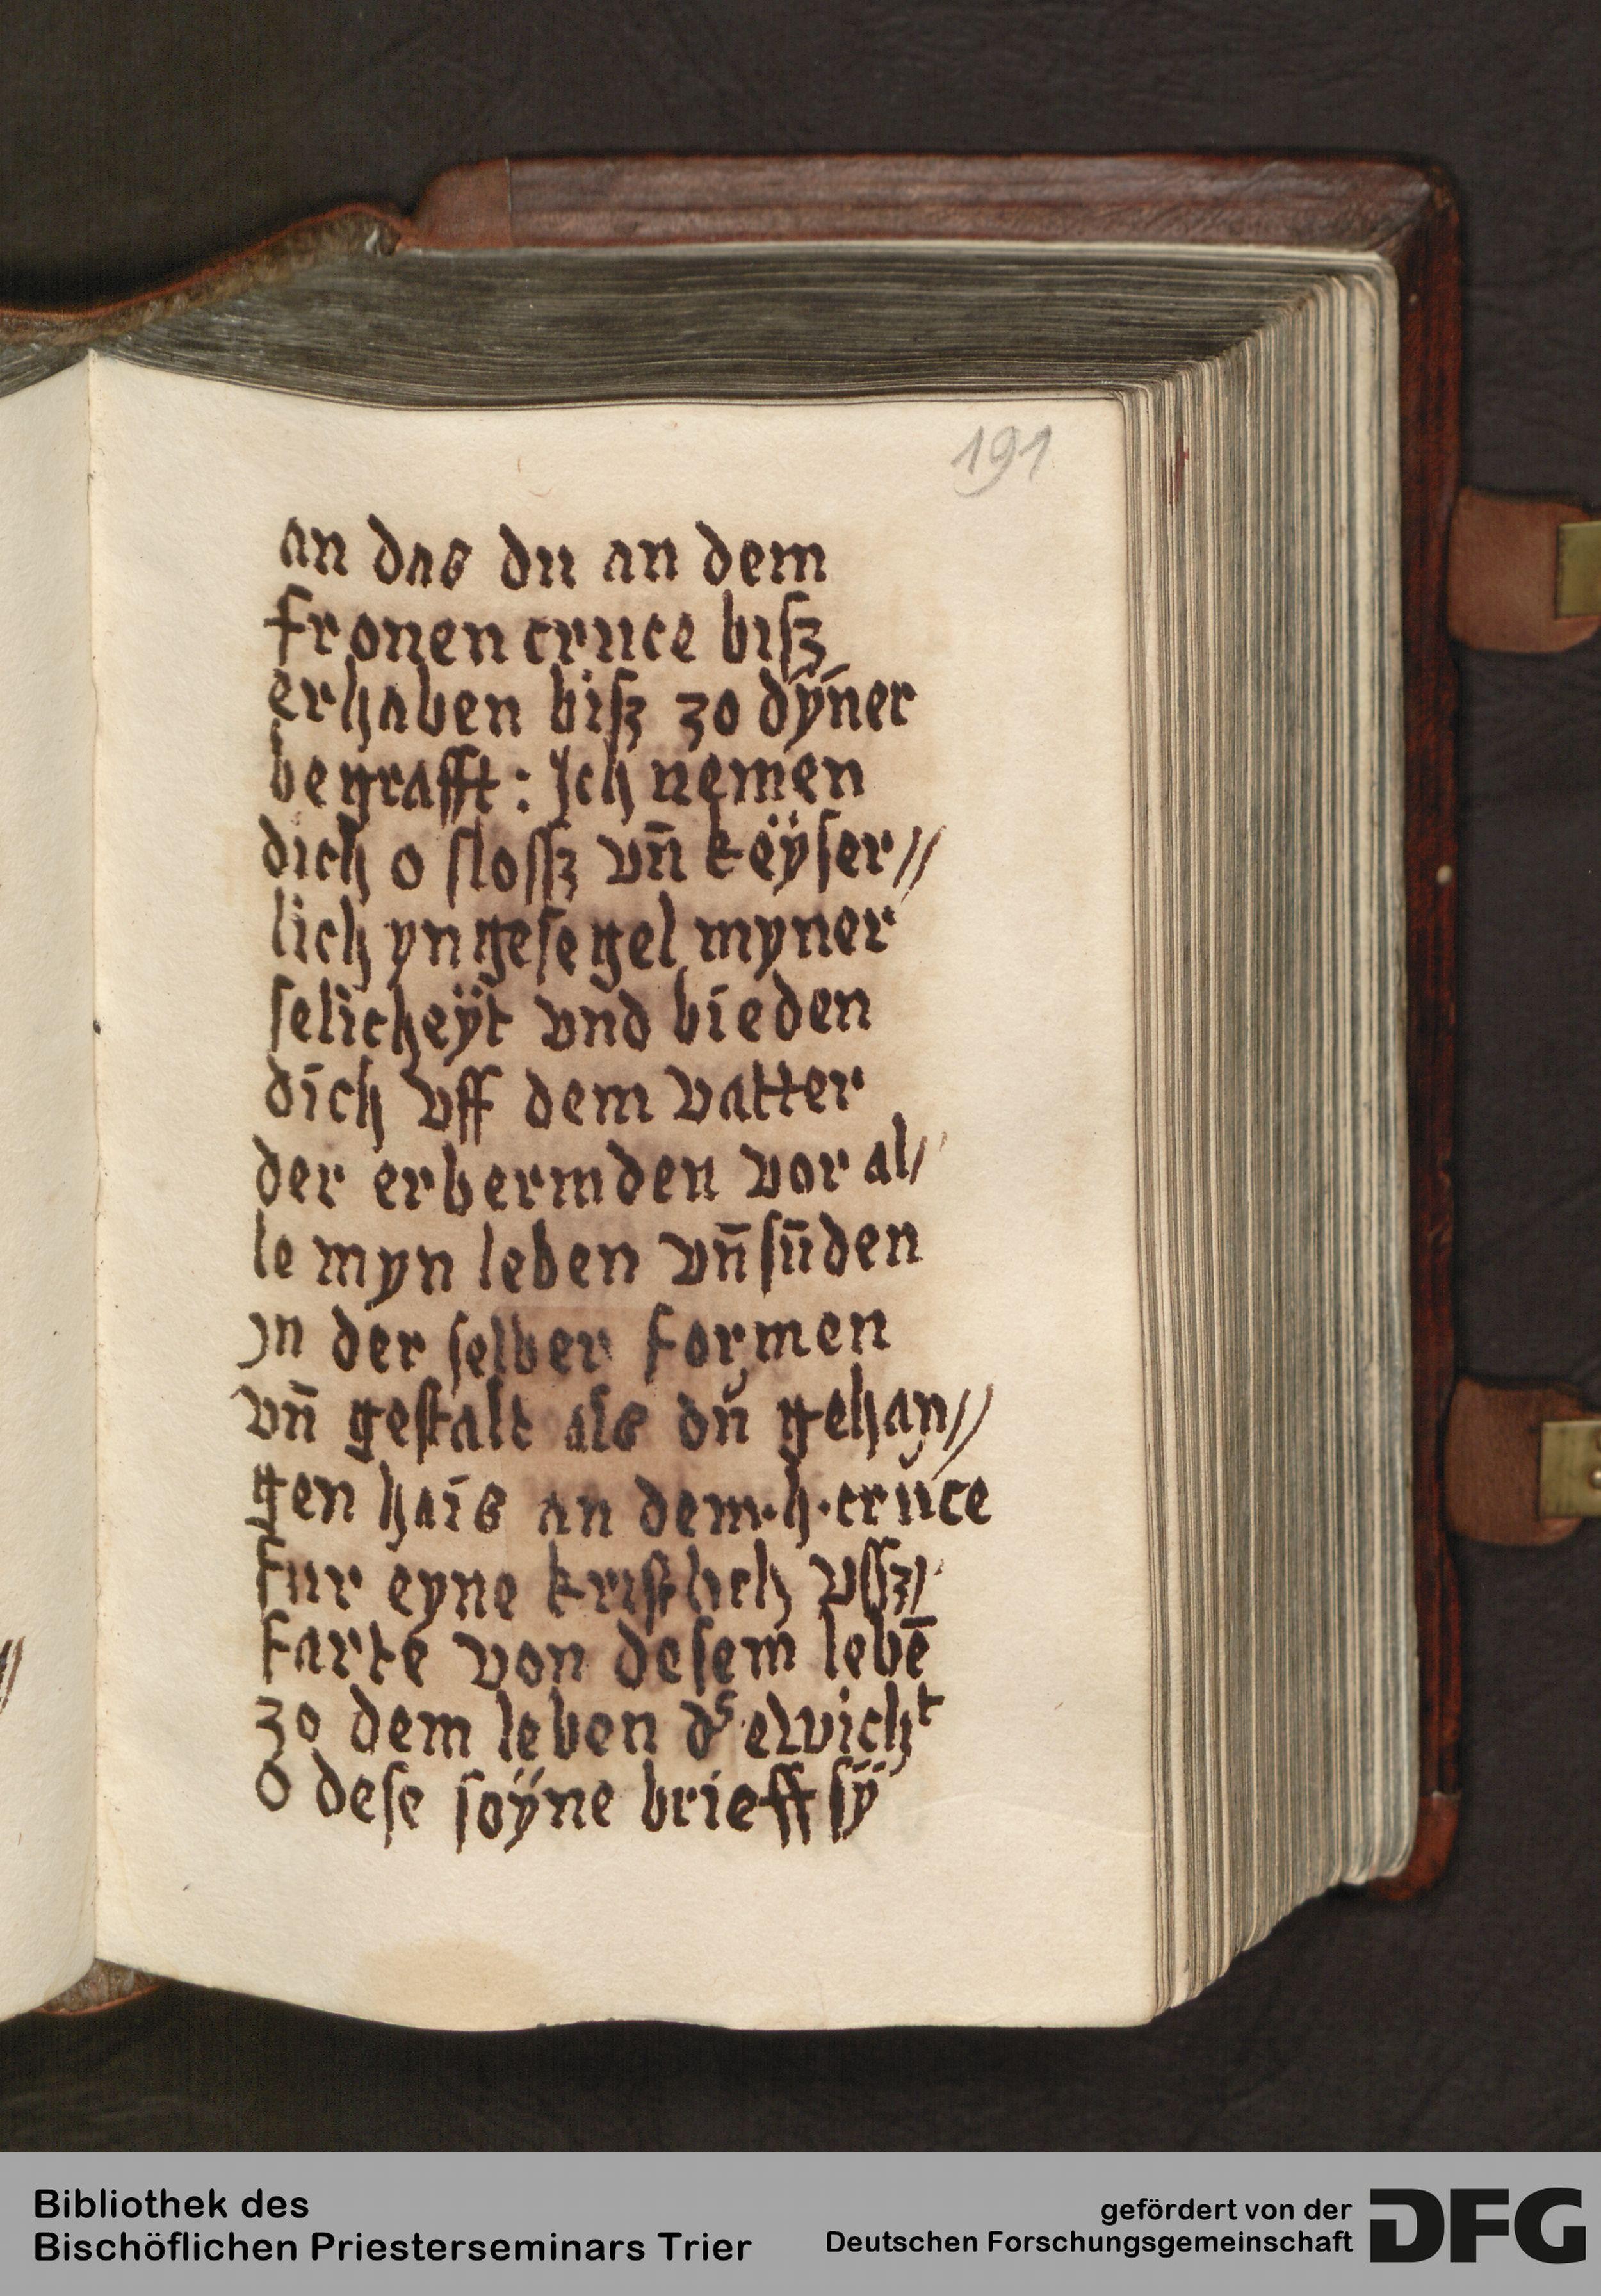 191
an das du an dem
fronen cruce bisz
erhaben bisz zo dÿner
begrafft : Jch nemen
dich o slossz vn̄ keÿser//
lich yngesegel myner
selicheÿt vnd bieden
dich vff dem vatter
der erbermden vor al/
le myn leben vn̄ sūden
jn der selber formen
vn̄ gestalt als du gehan//
gen hais an dem · h · cruce
fur eyne kristlich vssz/
farte von desem lebē
zo dem leben ds elvicht
O dese soÿne brieff sÿ
Bibliothek des
Bischöflichen Priesterseminars Trier
gefördert von der
Deutschen Forschungsgemeinschaft
DFG